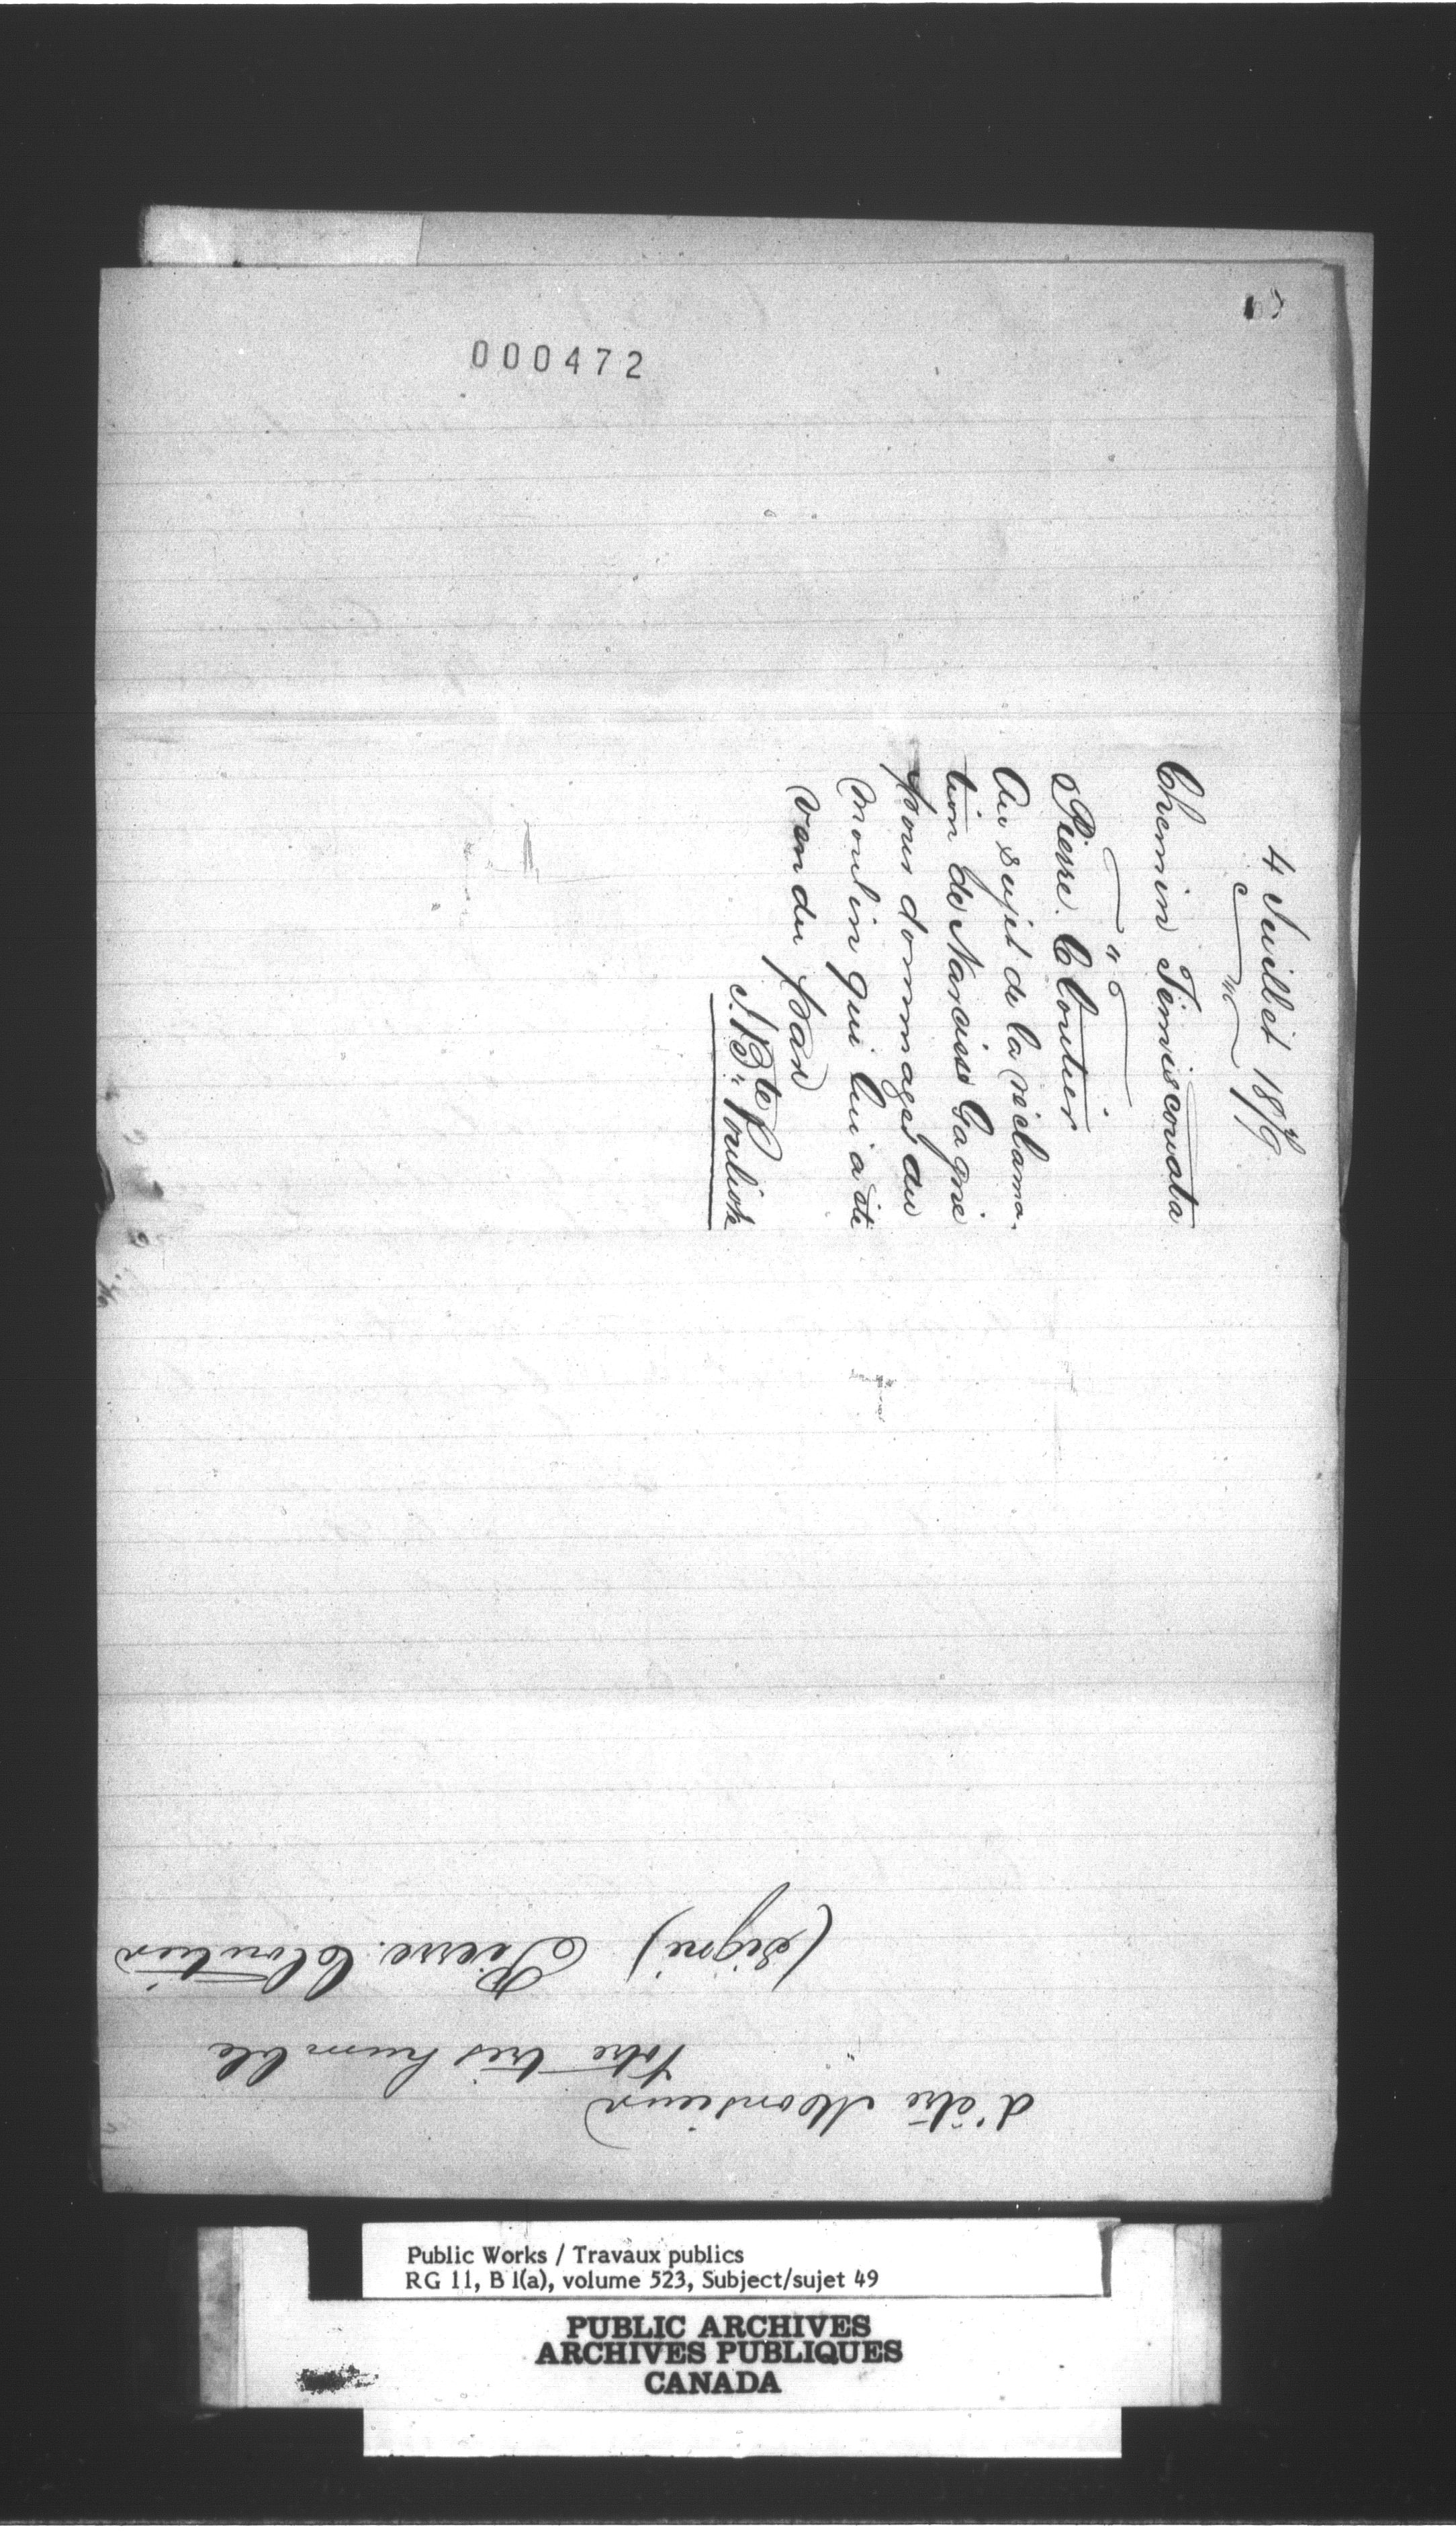 000472
4 Juillet 18
Chemin Témiscouata
" "
Pierre. Cloutier
Au sujet de la réclama-
tion de Narcisse Gagné
pour dommages du
moulin qui lui a été
vendu par
J. Bte. Pouliot
d'être Monsieur
Votre très humble
(signé) Pierre. Cloutier
Public Works / Travaux publics
RG 11, B 1(a), volume 523, Subject/sujet 49
PUBLIC ARCHIVES
ARCHIVES PUBLIQUES
CANADA